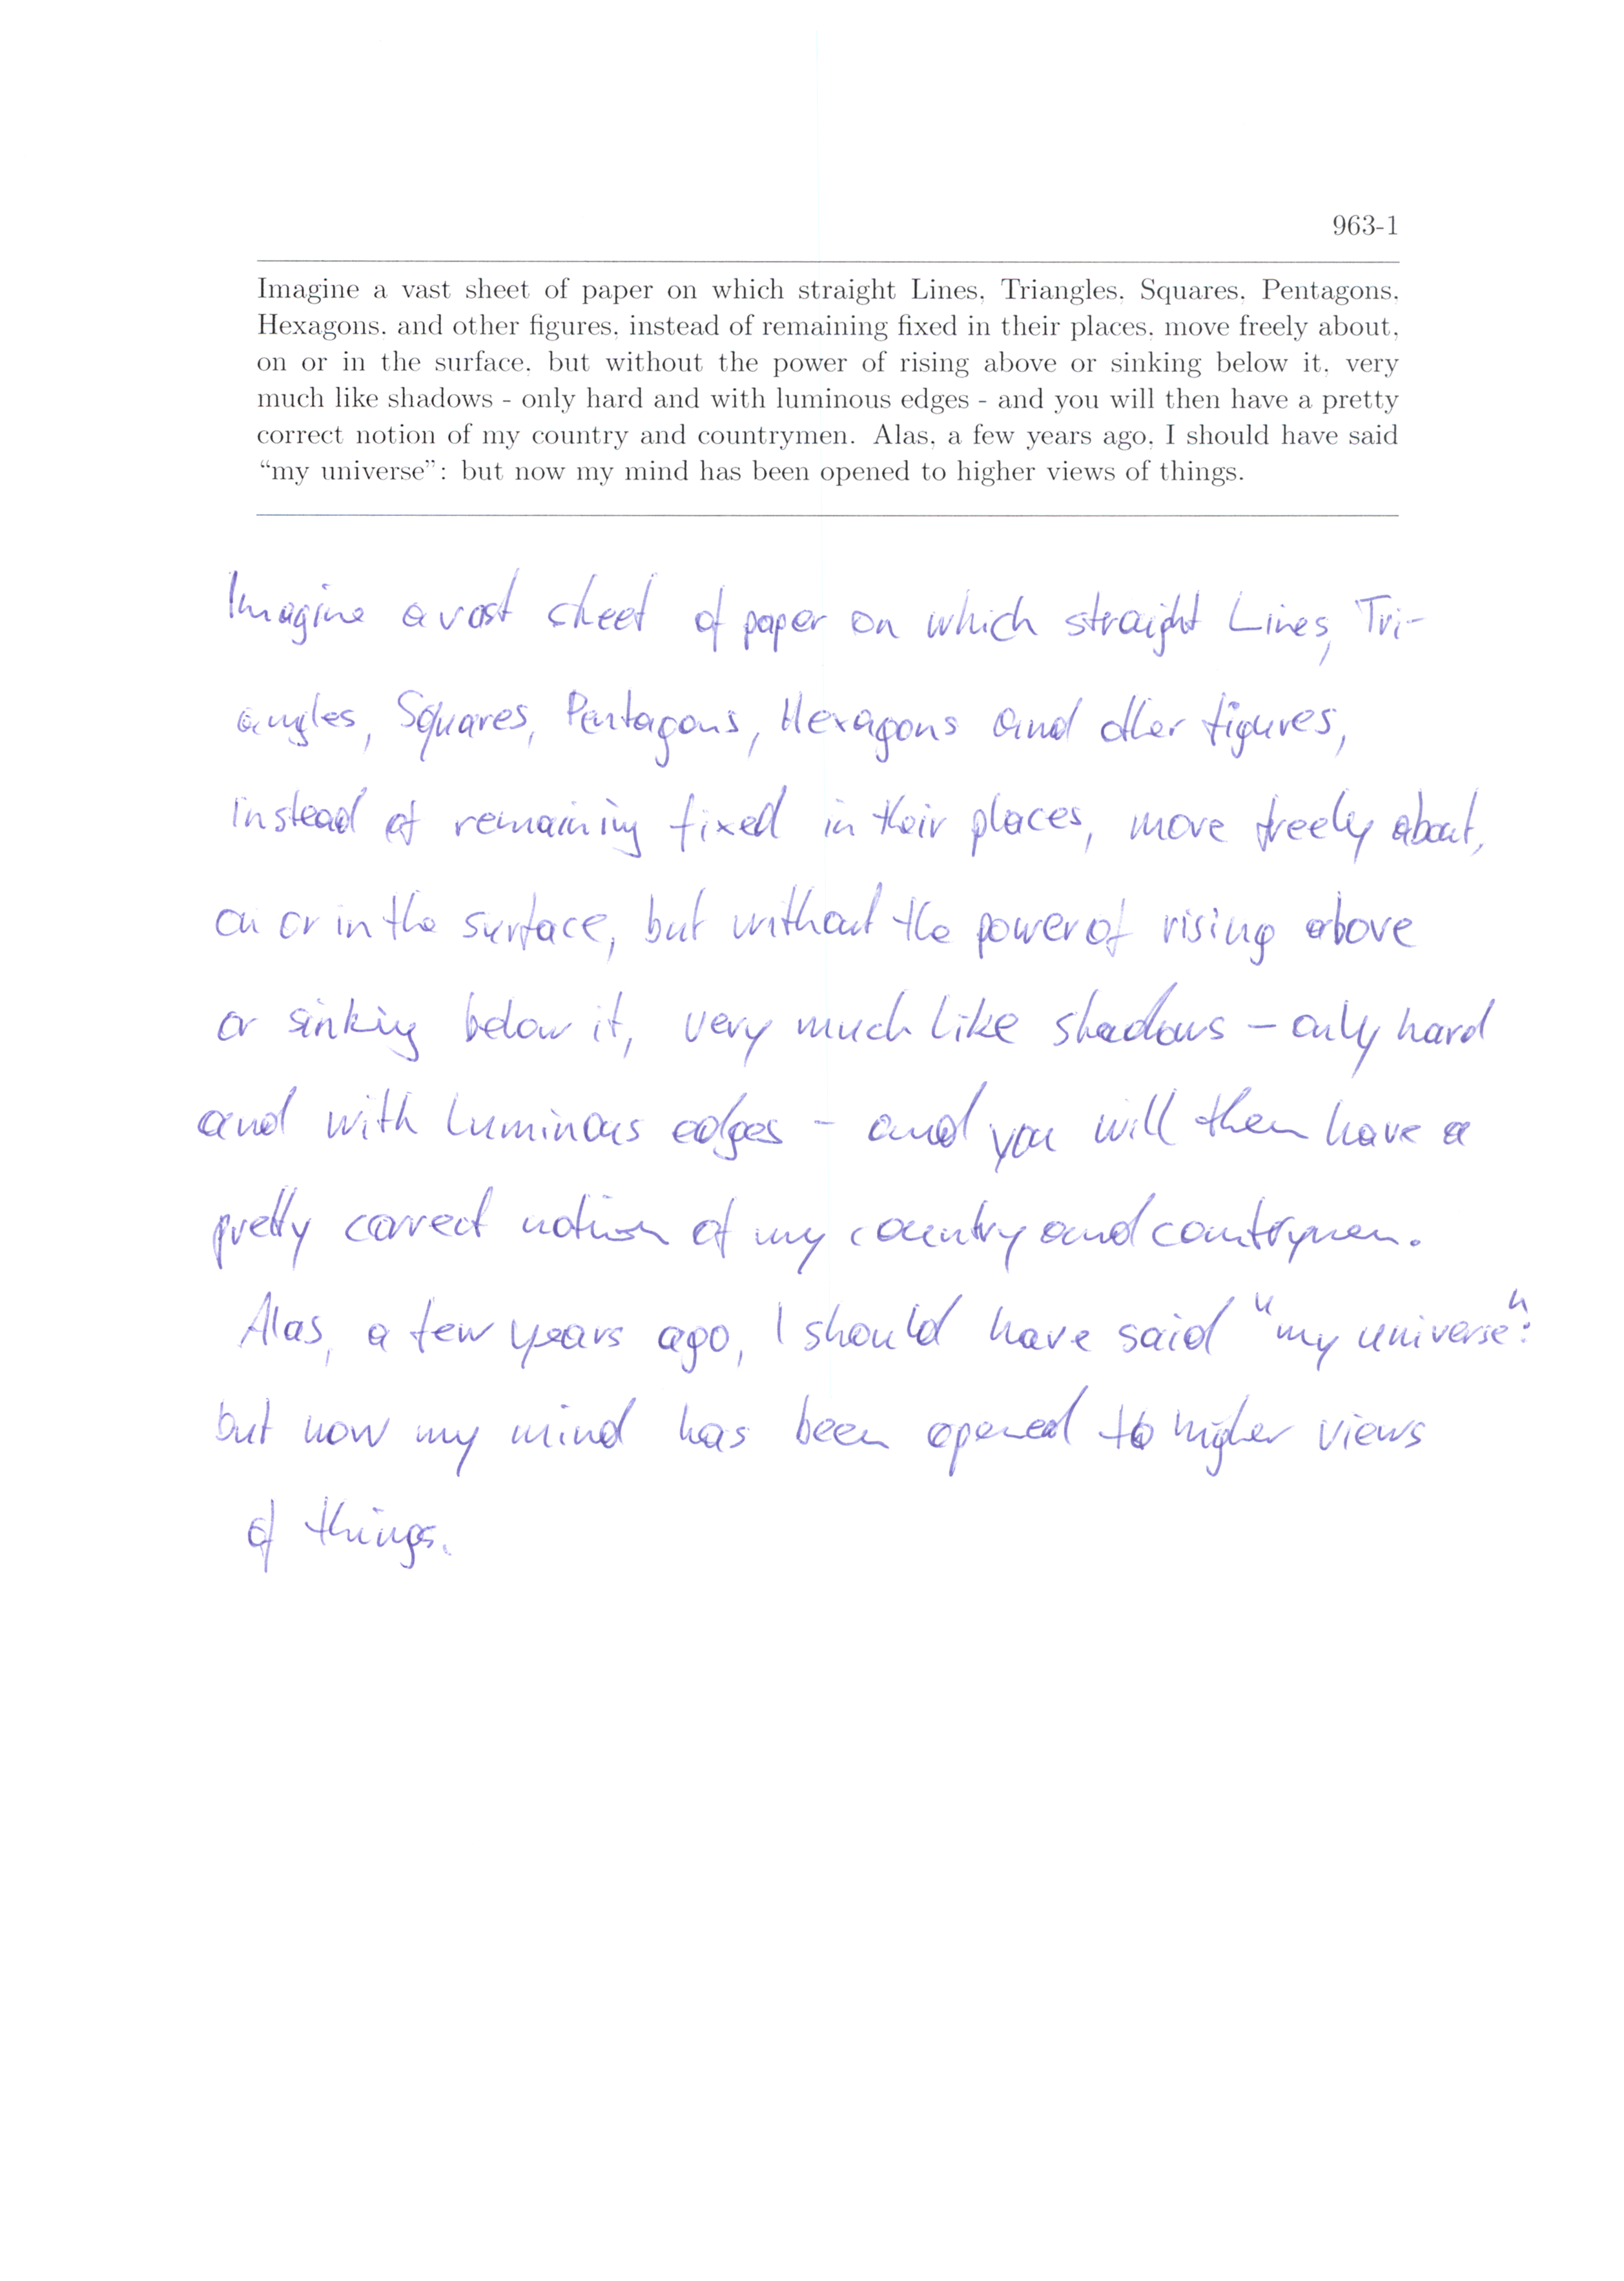 963-1
Imagine a vast sheet of paper on which straight Lines, Triangles, Squares, Pentagons,
Hexagons, and other figures, instead of remaining fixed in their places, move freely about,
on or in the surface, but without the power of rising above or sinking below it, very
much like shadows - only hard and with luminous edges - and you will then have a pretty
correct notion of my country and countrymen. Alas, a few years ago, I should have said
“my universe”: but now my mind has been opened to higher views of things.
Imagine a vast sheet of paper on which straight Lines, Tri-
angles, Squares, Pentagons, Hexagons and other figures,
instead of remaining fixed in their places, move freely about,
on or in the surface, but without the power of rising above
or sinking below it, very much like shadows – only hard
and with luminous edges – and you will then have a
pretty correct notion of my country and countrymen.
Alas, a few years ago, I should have said "my universe":
but now my mind has been opened to higher views
of things.